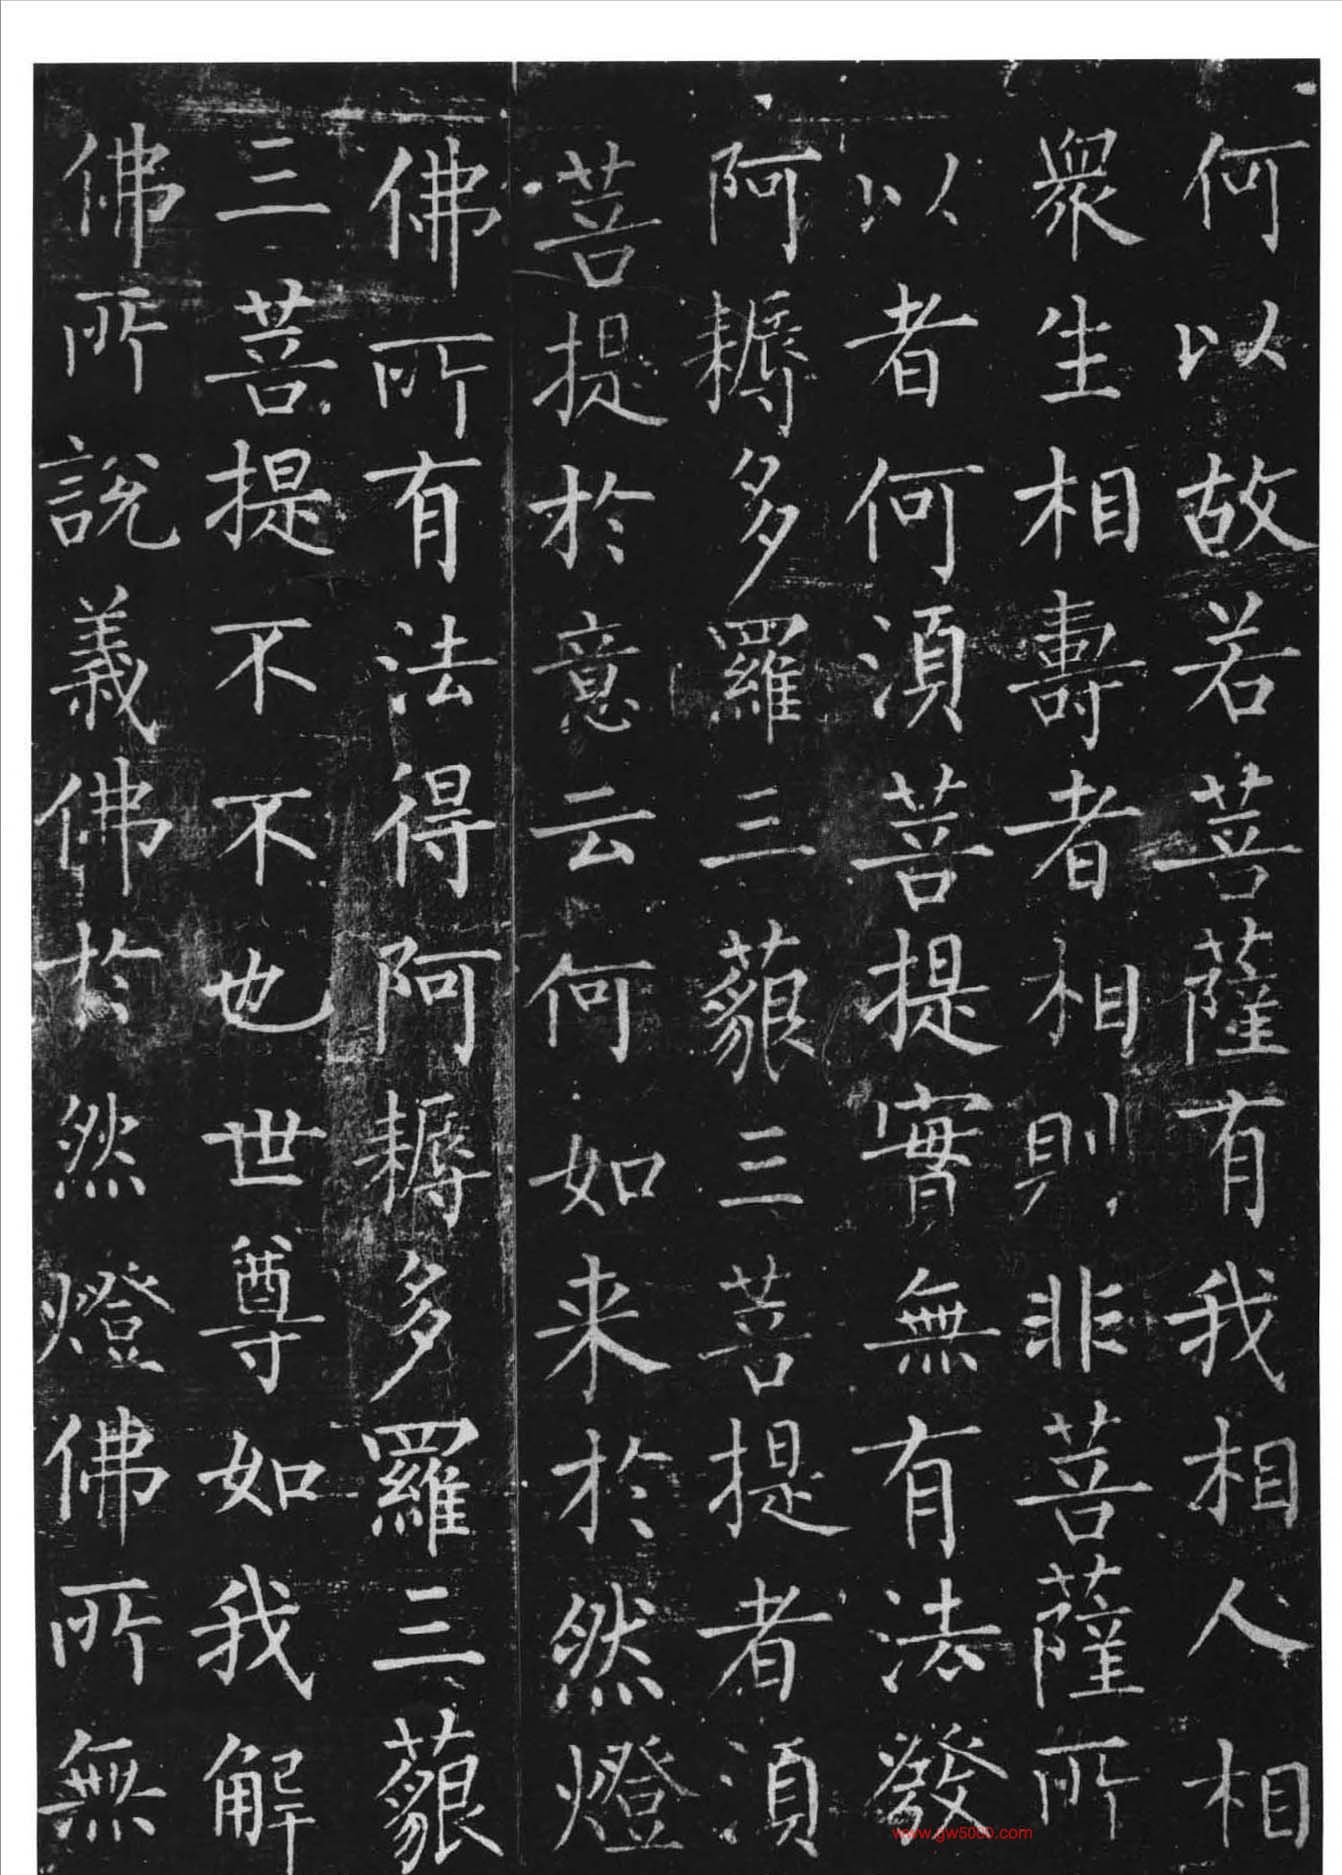 何以故若菩薩有我相人相
衆生相壽者相則非菩薩所
以者何湏菩提實無有法發
阿耨多羅三藐三菩提者湏
菩提於意云何如来於然燈
佛所有法得阿耨多羅三藐
三菩提不不也世尊如我解
佛所說義佛於然燈佛所無
www.gw5000.com